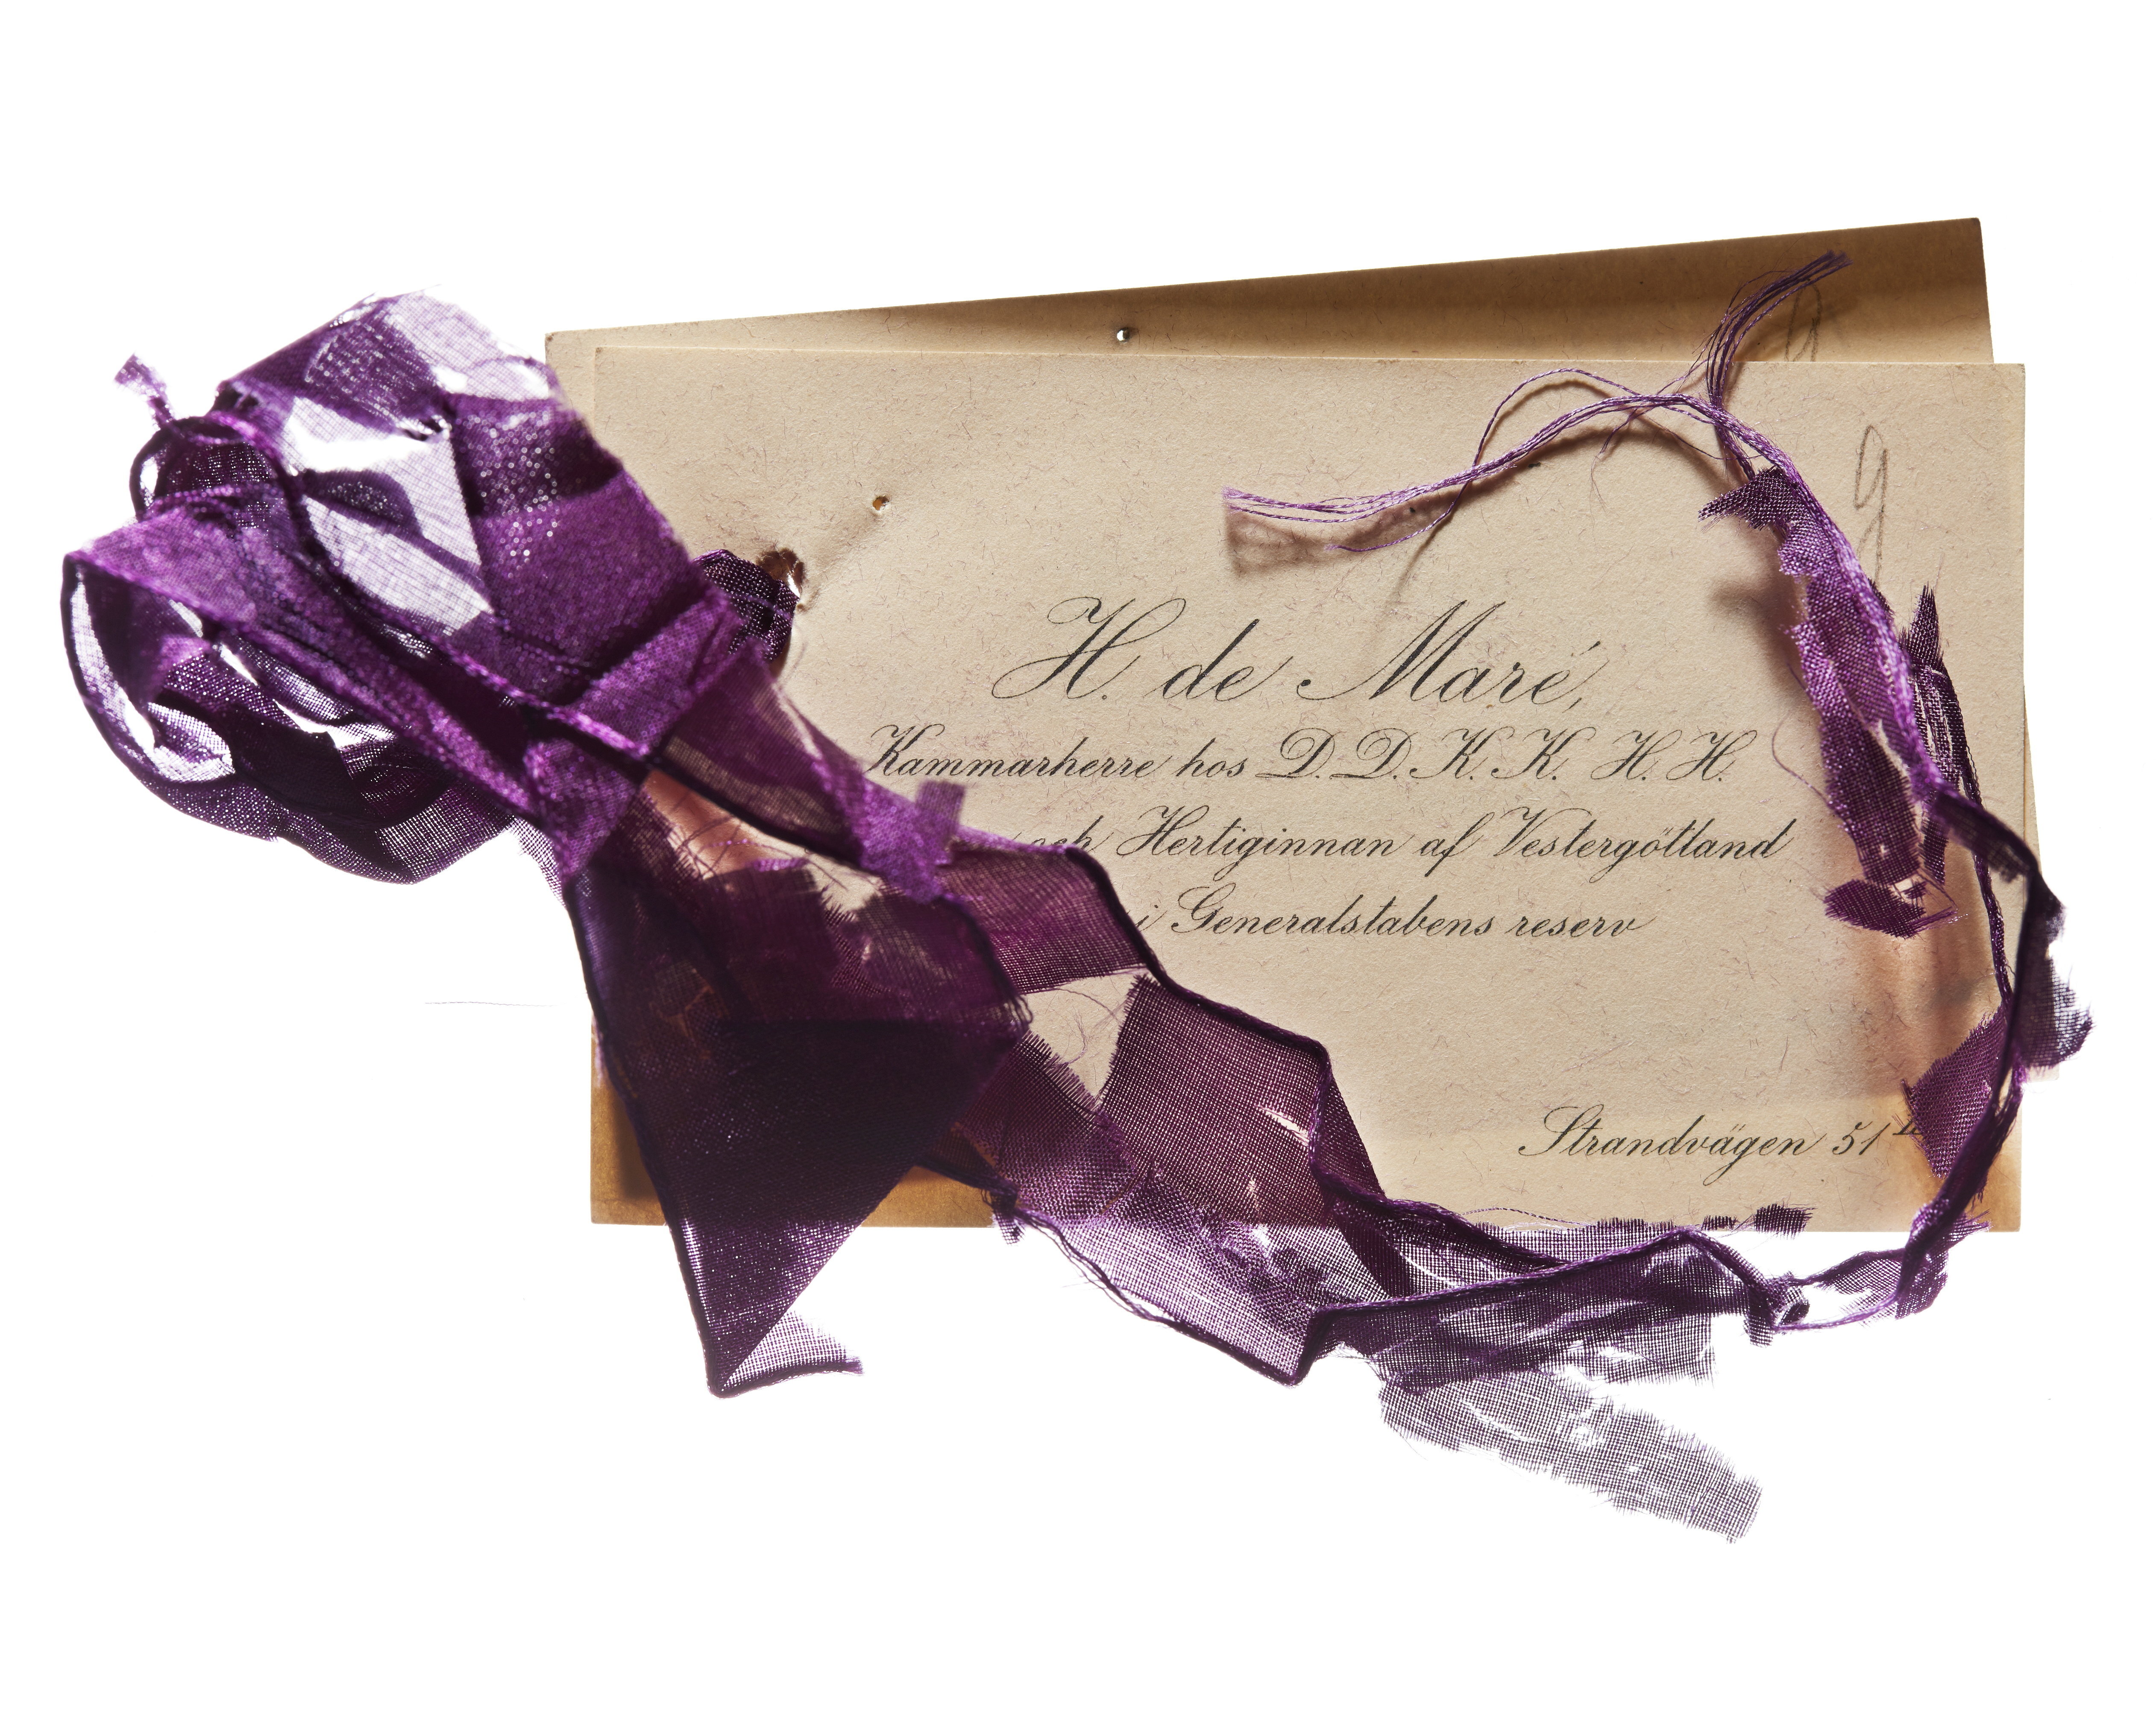 9
H. de Maré,
Kammarherre hos D.D.K.K. H.H.
och Hertiginnan af Vestergötland
i Generalstabens reserv
Strandvägen 51